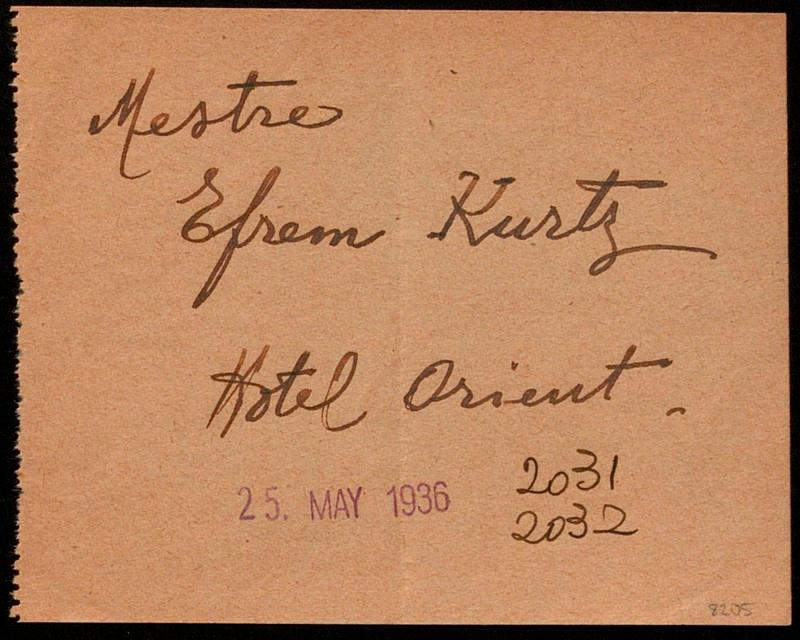 Mestre
Efrem Kurtz
Hotel Orient.
25. MAY 1936
2031
2032
8205